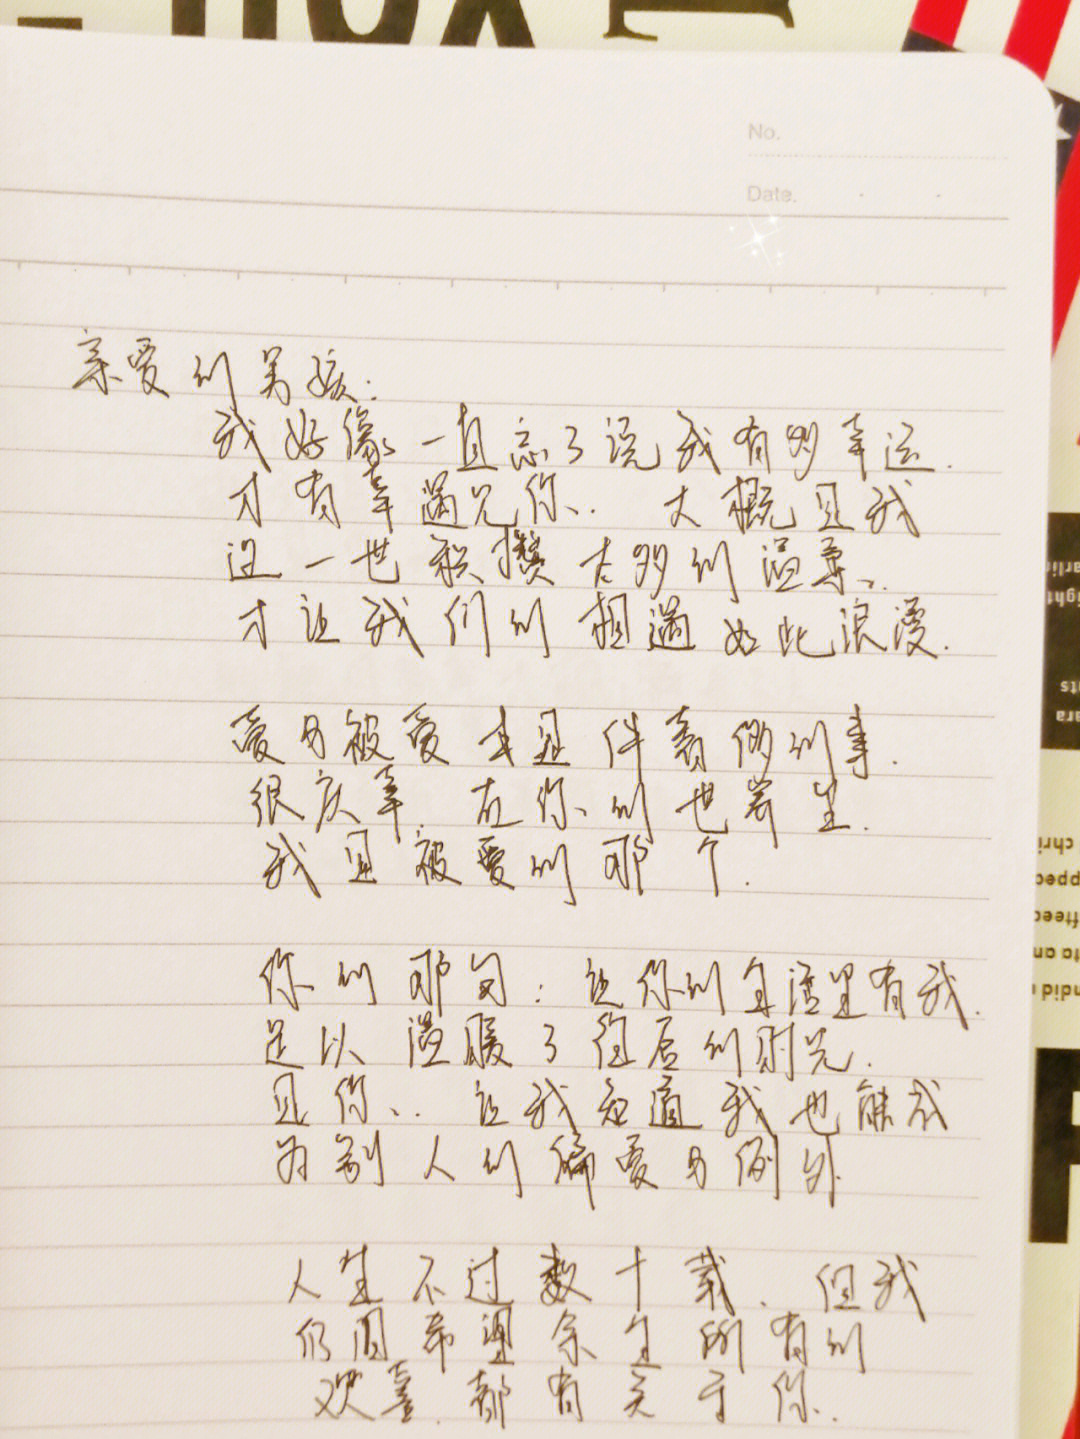 No.
Date.
亲爱的男孩:
我好像一直忘了说我有多幸运.
才有幸遇见你.. 大概是我
这一世积攒太多的温柔..
才让我们的相遇如此浪漫.
爱与被爱本是件奢侈的事.
很庆幸.在你的世界里.
我是被爱的那个.
你的那句:让你的生活里有我.
足以温暖了往后的时光.
是你.. 让我知道我也能成
为别人的偏爱与例外
人生不过数十载. 但我
仍旧希望余生所有的
欢喜.都有关于你.